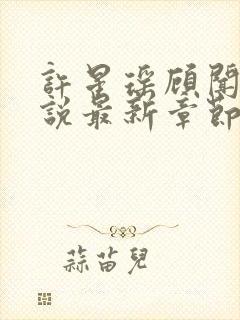 許星瑤顧聞
說最新章節
蒜苗兒